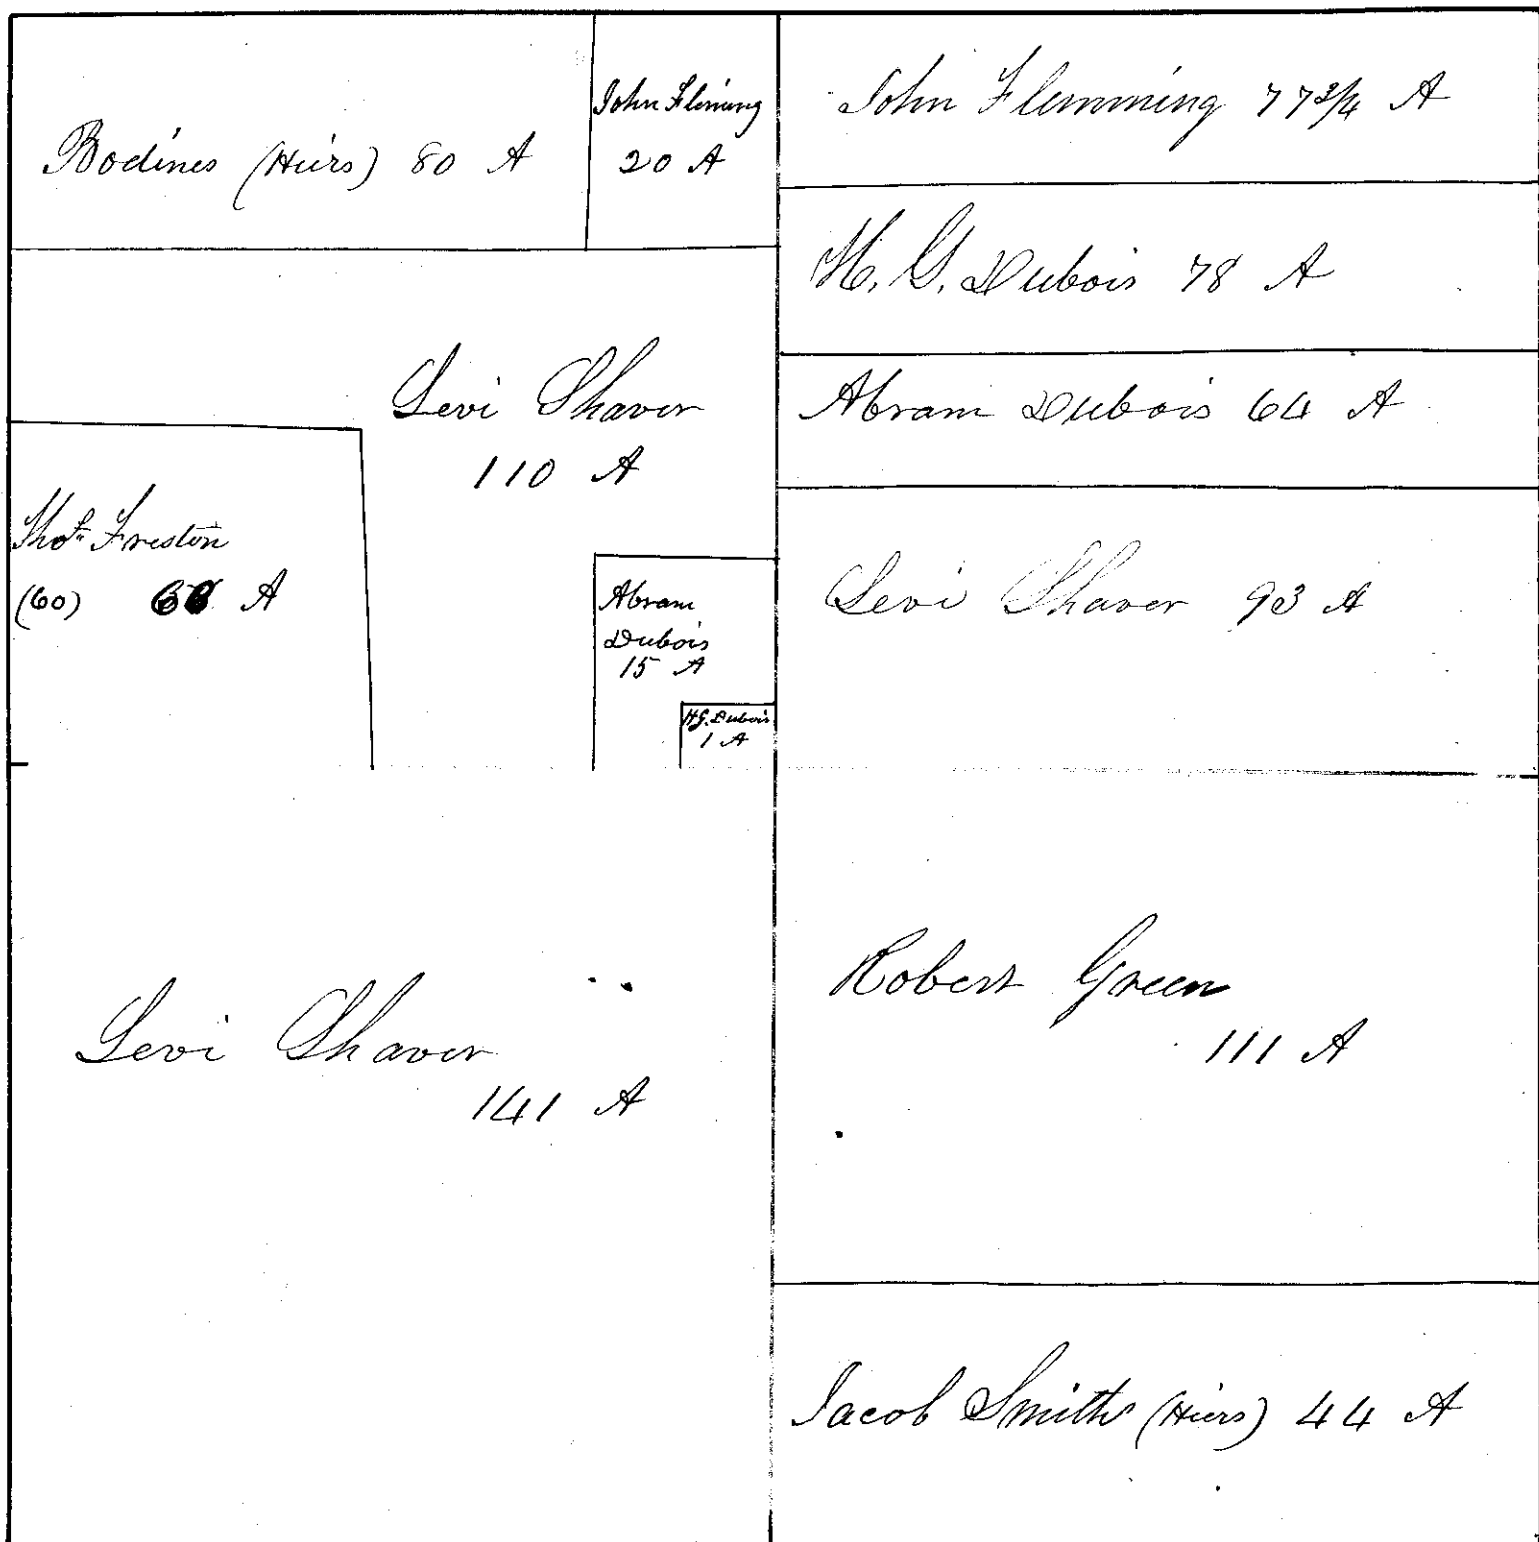 Bodines (Heirs) 80 A
John Fleming
20 A
John Flemming 77 3/4 A
H. G. Dubois 78 A
Levi Shaver
110 A
Abram Dubois 64 A
Thos. Freston
(60) 60 A
Abram
Dubois
15 A
H.G. Dubois
1 A
Levi Shaver 93 A
Levi Shaver
141 A
Robert Green
111 A
Jacob Smith (Hiers) 44 A